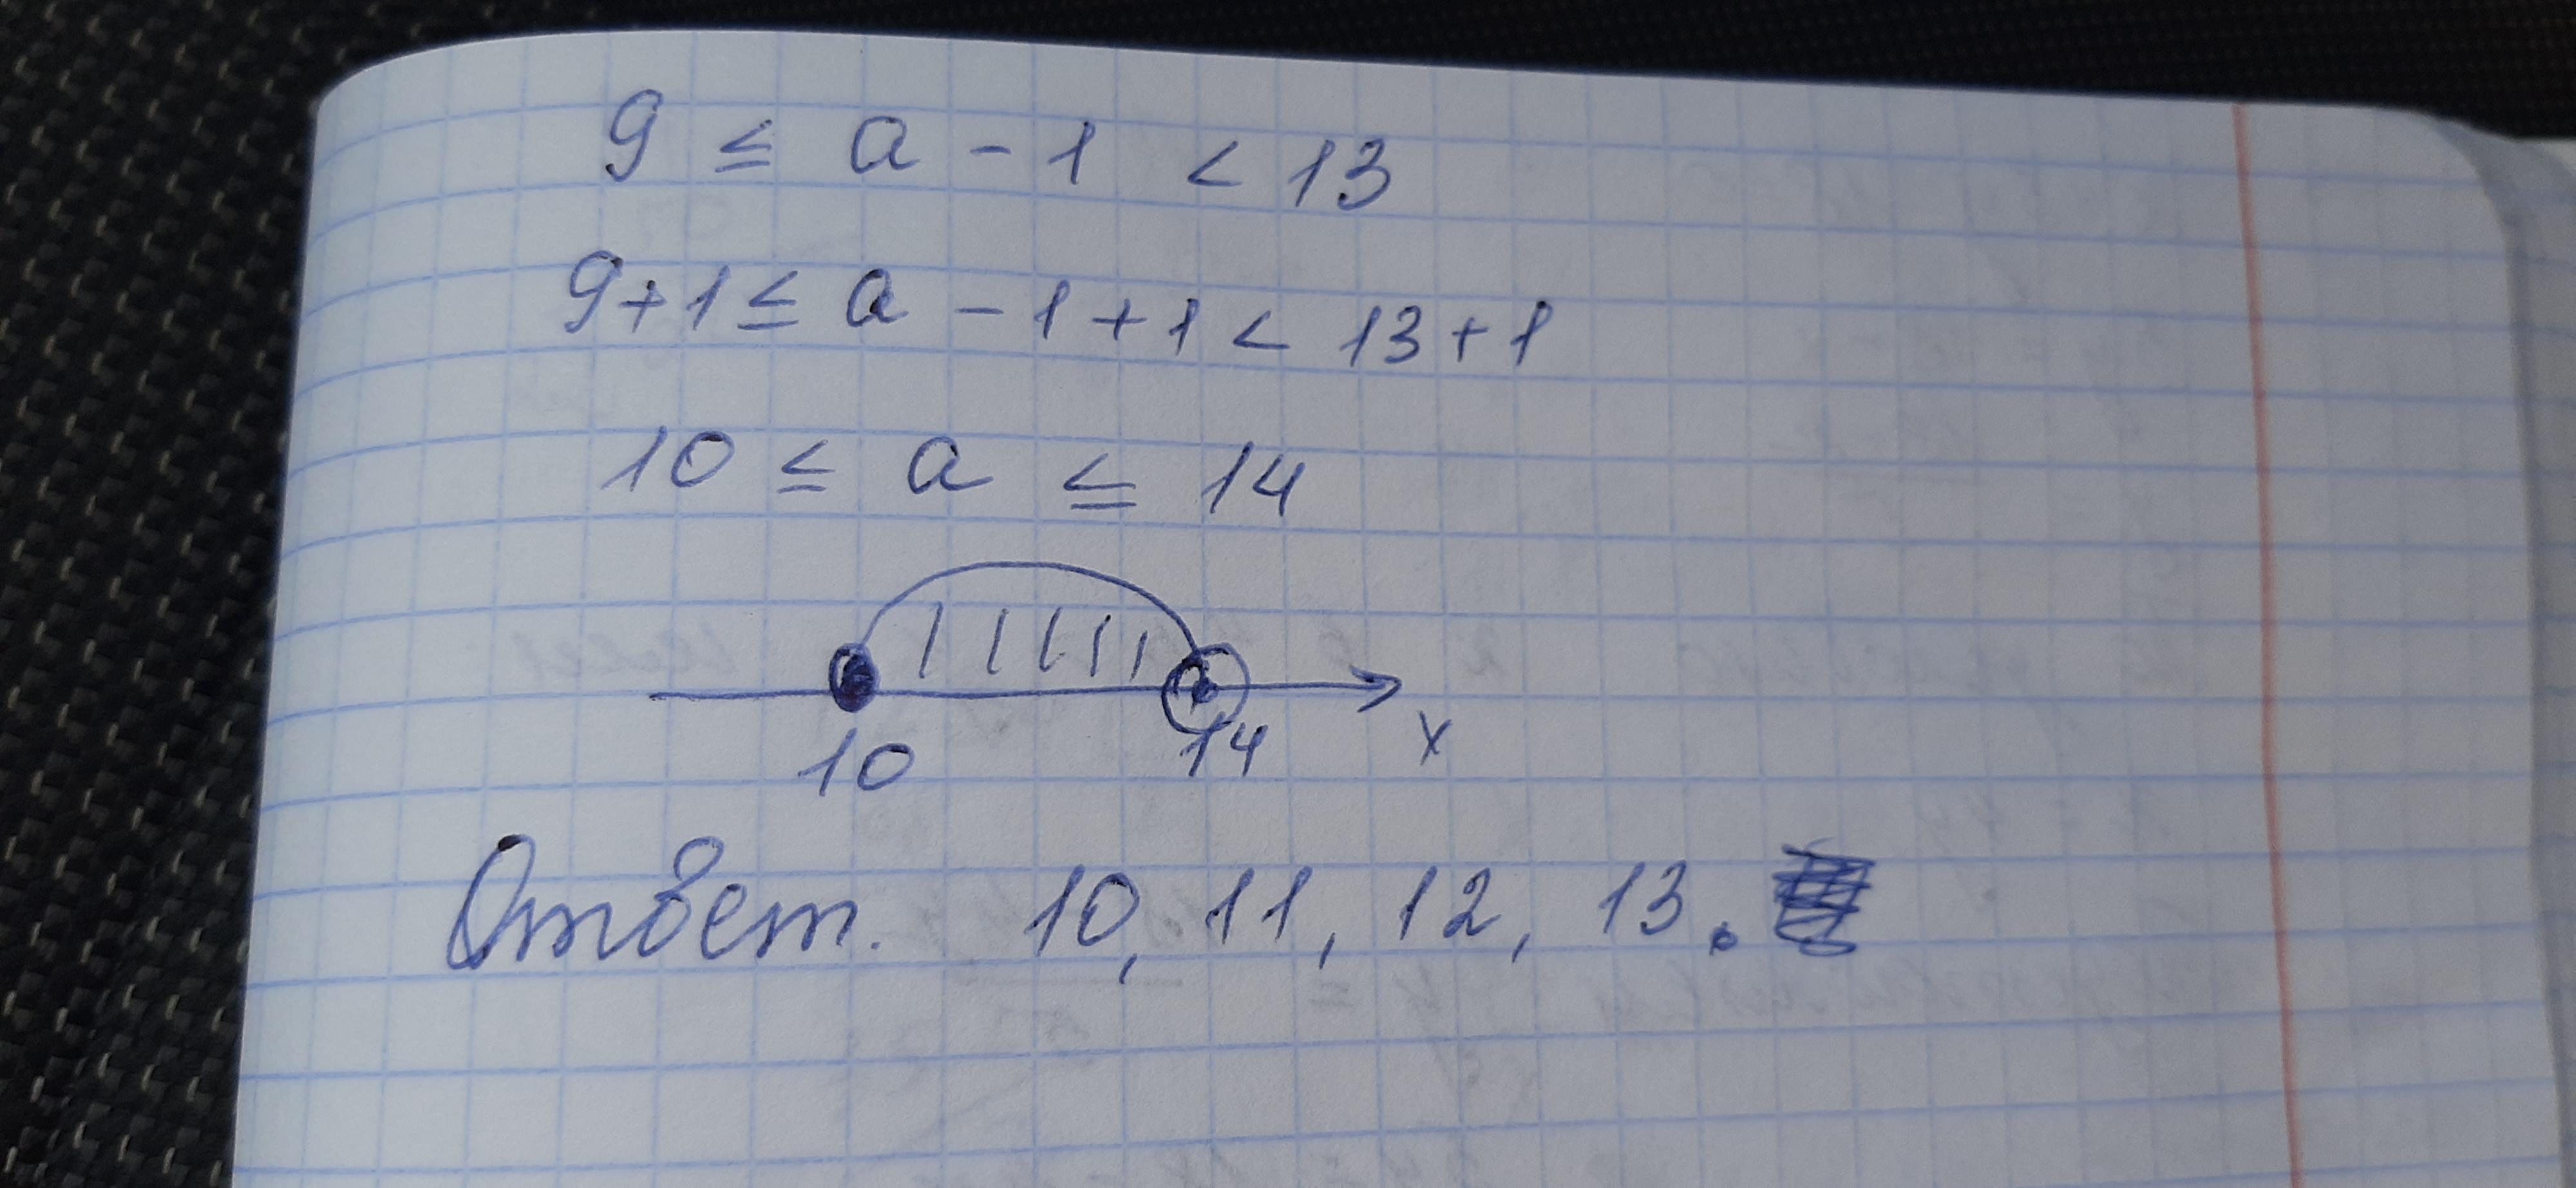 9 ≤ a - 1 < 13
9+1 ≤ a - 1 + 1 < 13 + 1
10 ≤ a ≤ 14
10 14 x
Ответ. 10, 11, 12, 13.